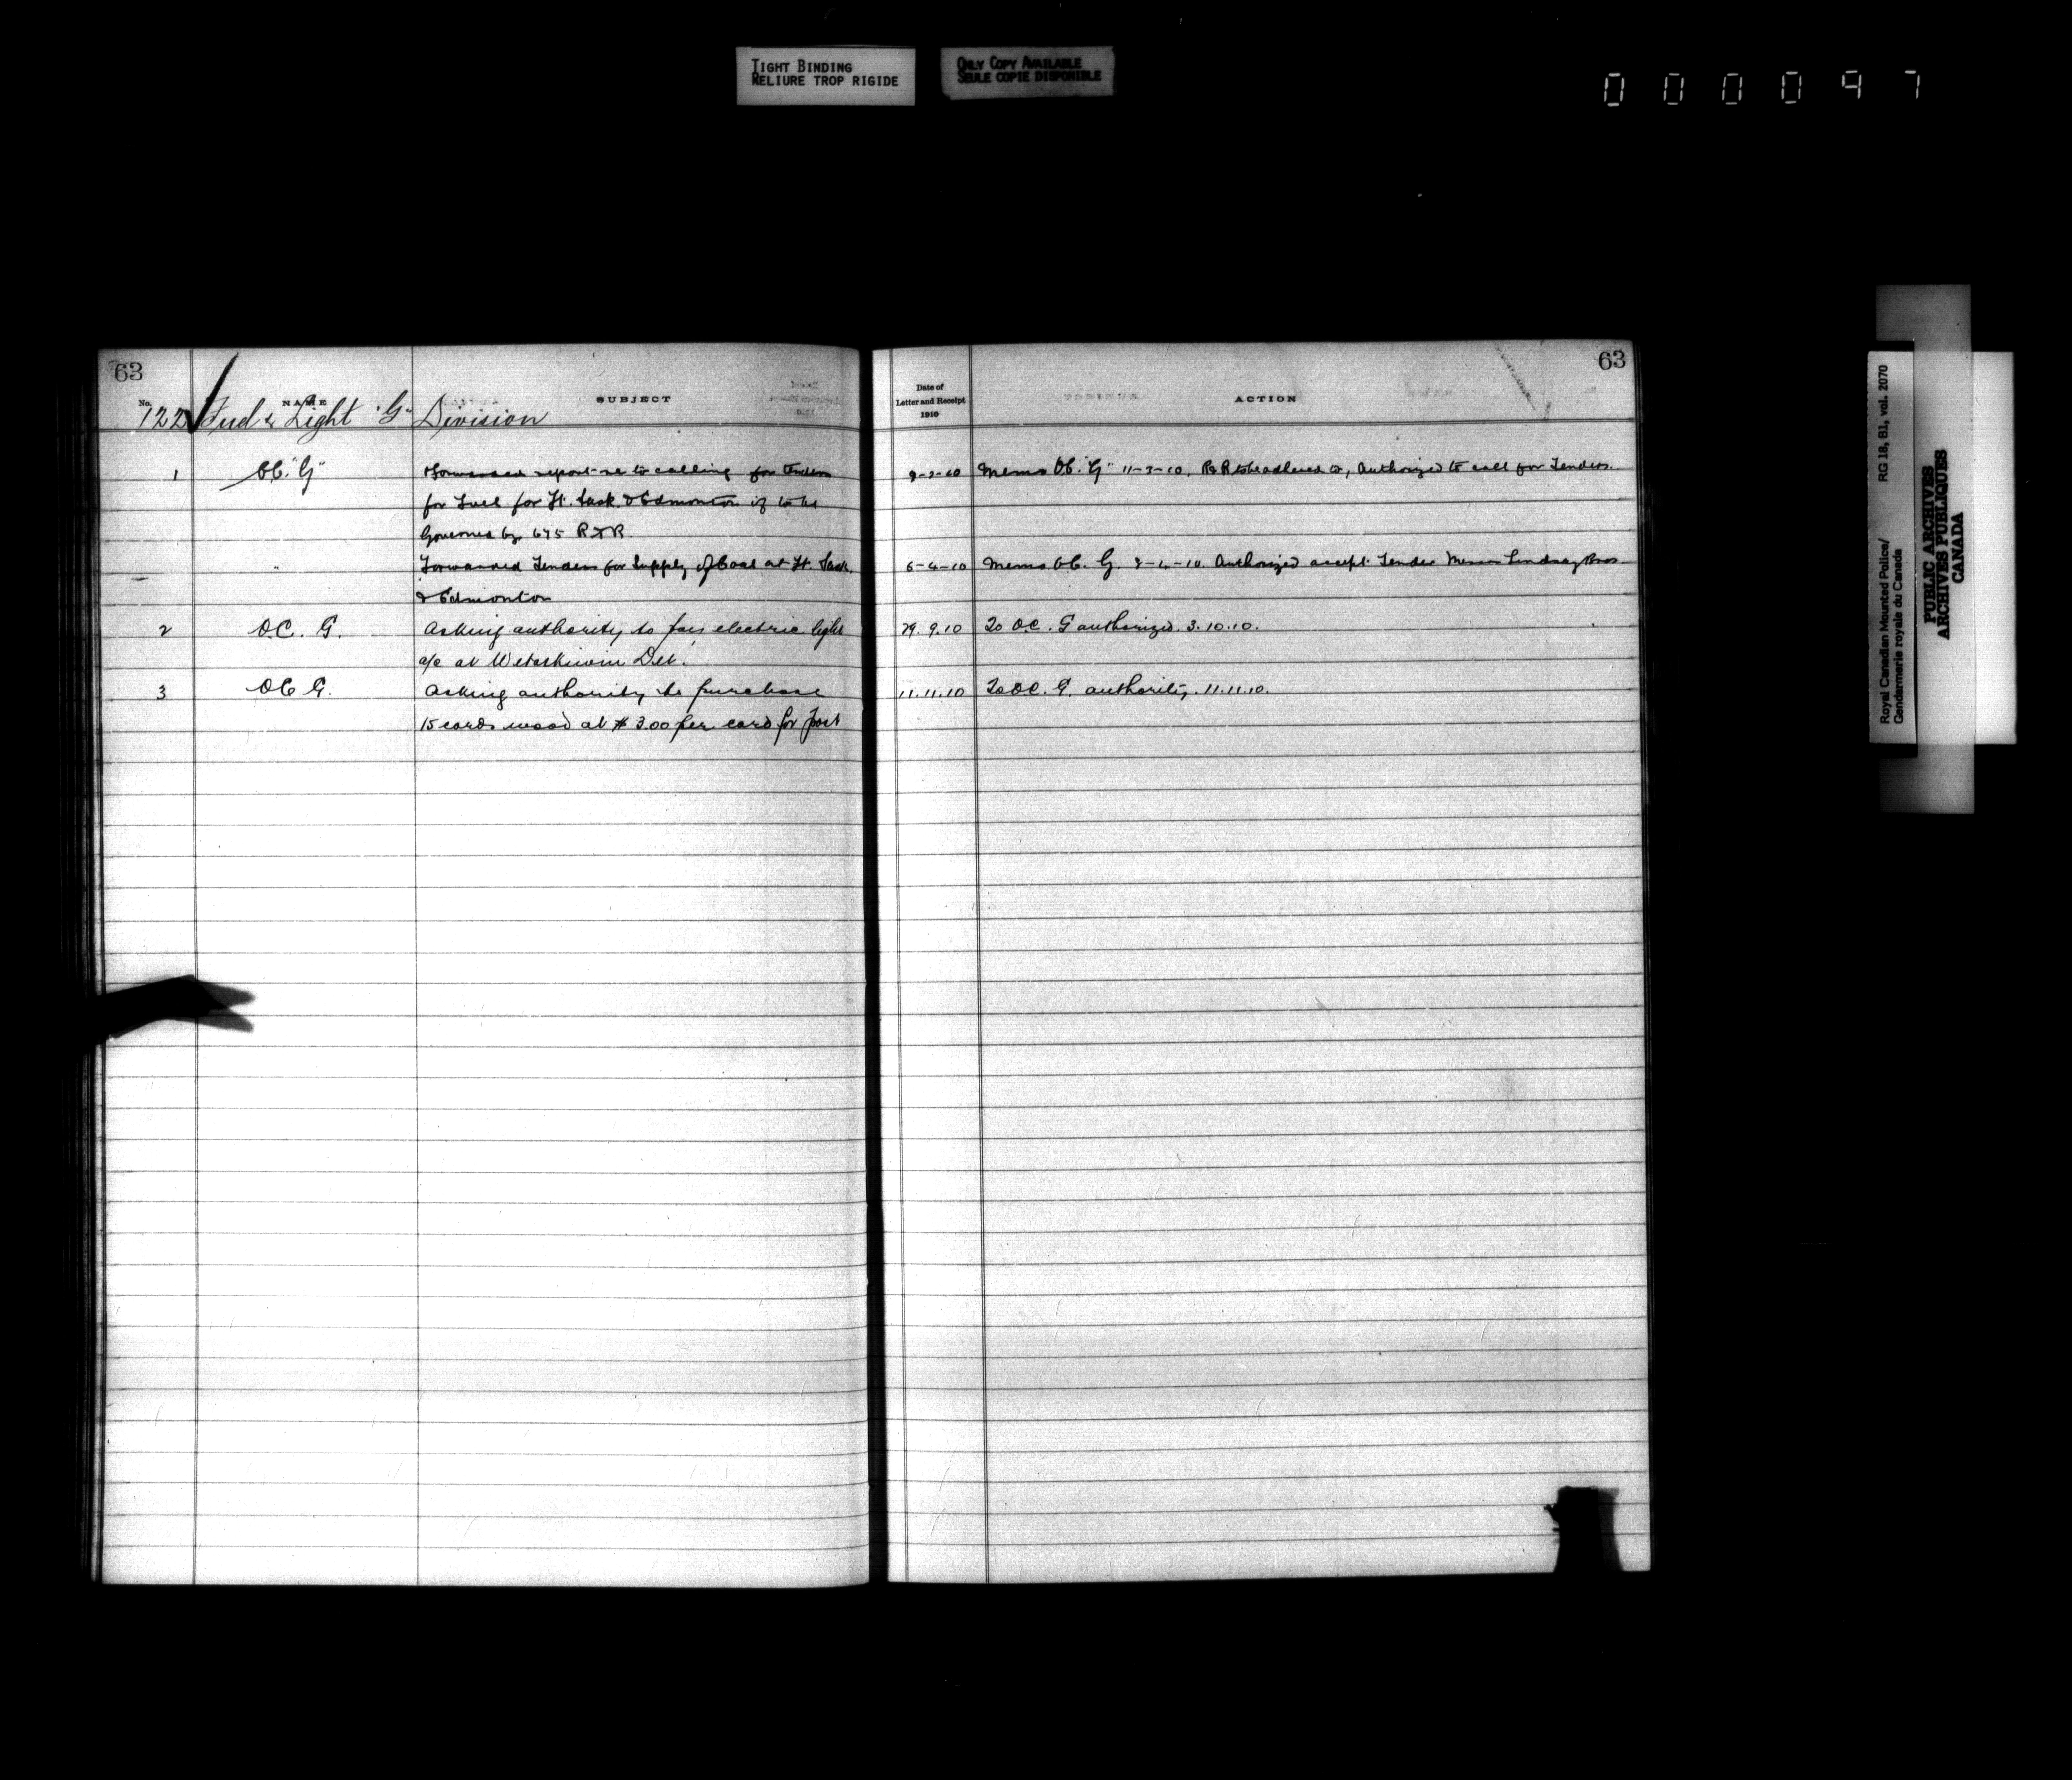 TIGHT BINDING
RELIURE TROP RIGIDE
ONLY COPY AVAILABLE
SEULE COPIE DISPONIBLE
000097
63
No. NAME SUBJECT
122 Fuel & Light "G" Division
1 OC. "G" Forwarded report re to calling for Tenders
for Fuel for Ft. Sask. & Edmonton if to be
Governed by 675 R & R
" Forwarded Tenders for Supply of Coal at Ft. Sask.
& Edmonton
2 OC. G. Asking authority to pay electric light
a/c at Wetaskiwin Det.
3 OC G. Asking authority to purchase
15 cords wood at $3.00 per cord for post
63
Date of
Letter and Receipt
1910
ACTION
Memo OC. "G" 11-3-10. R & R to be adhered to, Authorized to call for Tenders.
6-4-10 Memo OC. G. 8-4-10. Authorized accept Tender Messrs Lindsay Bros
29.9.10 To O.C. G authorized. 3.10.10.
11.11.10 To O.C. G. authority. 11.11.10.
Royal Canadian Mounted Police/
Gendarmerie royale du Canada
RG 18, B1, vol. 2070
PUBLIC ARCHIVES
ARCHIVES PUBLIQUES
CANADA